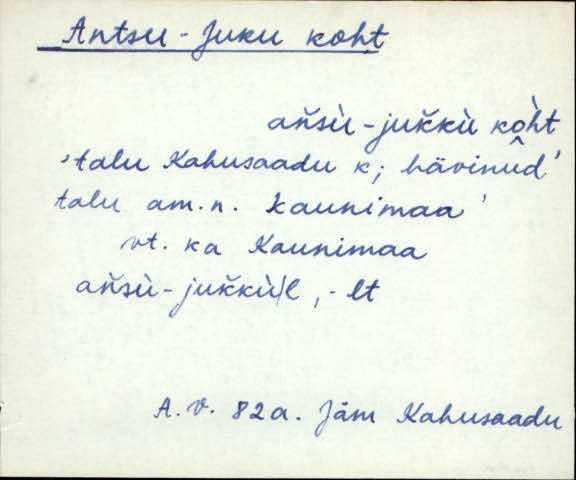 Antsu-Juku koht
añsù-juǩkù kò̭ht
'talu Kahusaadu k; hävinud'
talu am.n. Kaunimaa'
vt. ka Kaunimaa
añsù-juǩkù|l, -lt
A.V. 82a. Jäm Kahusaadu